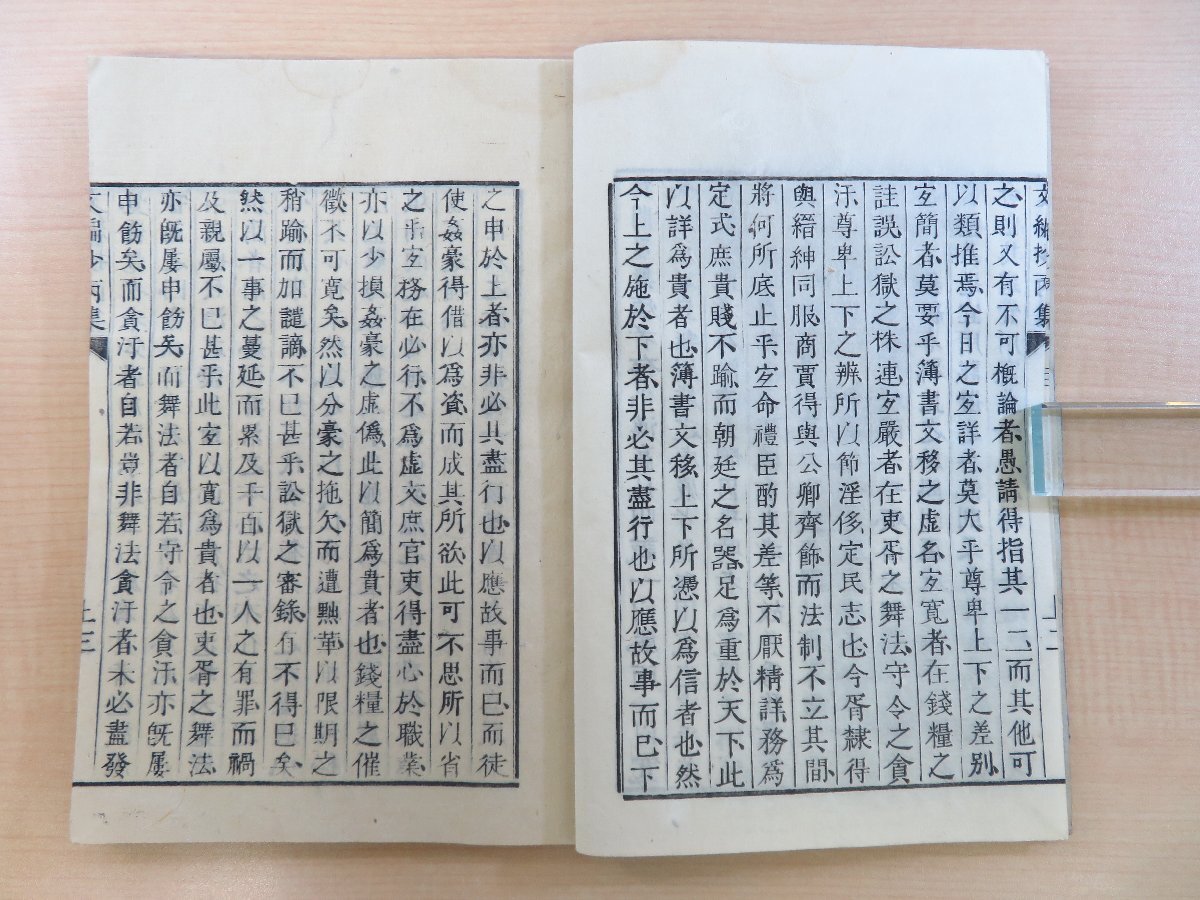 文編抄丙集
之則又有不可概論者愚請得指其一二而其他可
以類推焉今日之宐詳者莫大乎尊卑上下之差別
宐簡者莫要乎簿書文移之虛名宐寬者在錢糧之
詿誤訟獄之株連宐嚴者在吏胥之舞法守令之貪
汙尊卑上下之辨所以節淫侈定民志也今胥隸得
與縉紳同服商賈得與公卿齊飾而法制不立其間
將何所底止乎宐命禮臣酌其差等不厭精詳務爲
定式庶貴賤不踰而朝廷之名器足爲重於天下此
以詳爲貴者也簿書文移上下所憑以爲信者也然
今上之施於下者非必其盡行也以應故事而已下
之申於上者亦非必其盡行也以應故事而已而徒
使姦豪得借以爲資而成其所欲此可不思所以省
之乎宐務在必行不爲虛文庶官吏得盡心於職業
亦以少損姦豪之虛僞此以簡爲貴者也錢糧之催
徵不可寬矣然以分豪之拖欠而遭黜革以限期之
稍踰而加譴謫不已甚乎訟獄之審錄有不得已矣
然以一事之蔓延而累及千百以一人之有罪而禍
及親屬不已甚乎此宐以寬爲貴者也吏胥之舞法
亦旣屢申飭矣而舞法者自若守令之貪汙亦旣屢
申飭矣而貪汙者自若豈非舞法貪汙者未必盡發
文編抄丙集